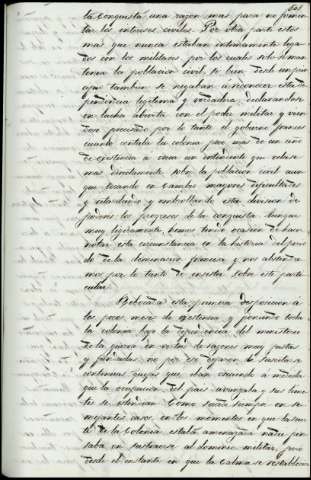 la conquista una razon mas para no fomentar
los intereses civiles. Por otra parte estos
mas que nunca estaban intimamente liga-
dos con los militares por los cuales solo se man-
tenia la poblacion civil, si bien desde un prin-
cipio tambien se negaban a reconocer esta de-
pendencia legitima y verdadera, declarandose
en lucha abierta con el poder militar y vien-
dose precisado por lo tanto el gobierno frances
cuando contaba la colonia poco mas de un año
de existencia a crear un intendente que velase
mas directamente sobre la poblacion civil aun-
que tocando en cambio mayores dificultades
y retardandose y embrollando esta division de
poderes los progresos de la conquista. Aunque
muy ligeramente, hemos tenido ocasion de hacer
notar esta circunstancia en la historia del perio-
do de la dominacion francesa y nos abstendre-
mos por lo tanto de insistir sobre este parti-
cular.
esta primera disposicion a
los pocos meses de existencia y poniendo toda
la colonia bajo la dependencia del ministerio
de la guerra en virtud de razones muy justas
y fundadas no por eso dejaron de suscitarse
continuas quejas que iban creciendo a medida
que la ocupacion del pais avanzaba y sus limi-
tes se estendian. Como suele siempre en se-
mejantes casos, en los momentos en que la suer-
te de la colonia estaba amenazada nadie pen-
saba en sustraerse al dominio militar, pero
desde el instante en que la calma se restablecia